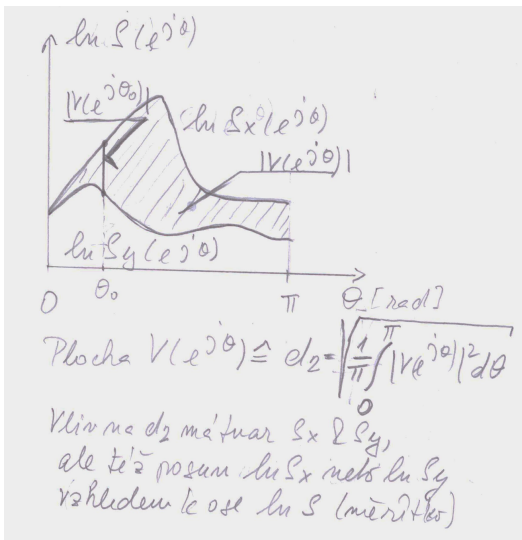 ln S(e^jθ)
|V(e^jθ₀)|
ln Sx(e^jθ)
|V(e^jθ)|
ln Sy(e^jθ)
0 θ₀ π θ [rad]
Plocha V(e^jθ) ≙ d₂ = √(1/π ∫₀^π |V(e^jθ)|² dθ)
Vliv na d₂ má tvar Sx & Sy,
ale též posun ln Sx nebo ln Sy
vzhledem k ose ln S (měřítko)